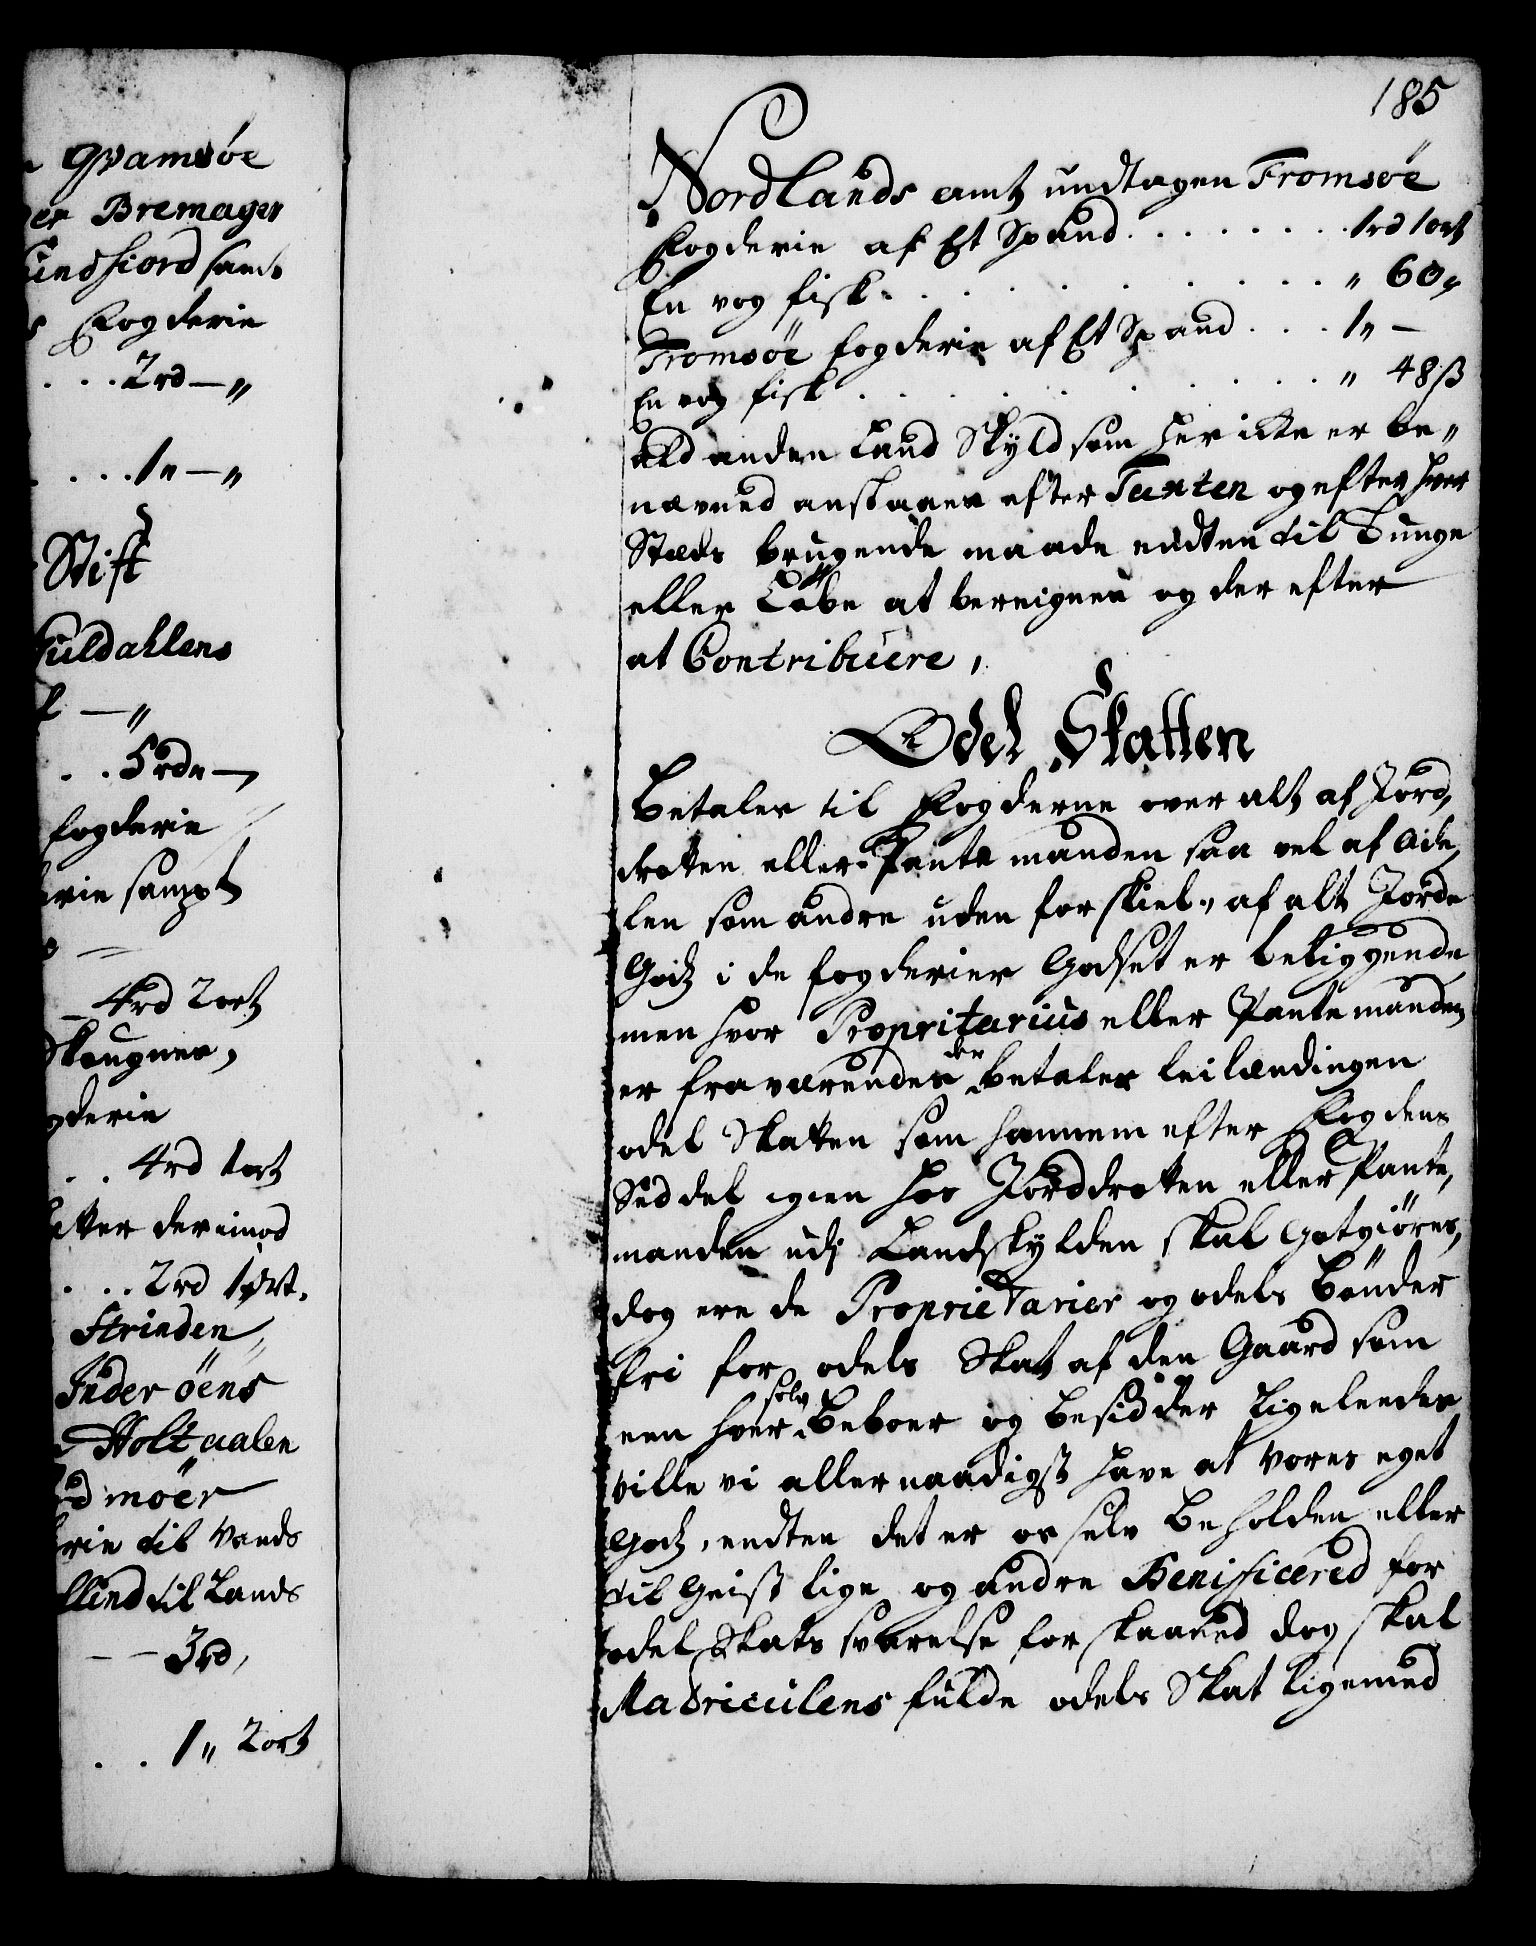 Qvamsøe
er Bremager
undfiord samt
s Fogderie
. . . 2rd — „
. . . 1„ — „
Stift
Guldahlens
— „
. . 5rdr —
fogderie
erie sampt
4rd 2ort
Skougner,
gderie
. . 4rd 1ort
derimod
. . . 2rd 1ort.
Strinden
Inderöens
Holtaalen
dmöer
erie til Vands
til Lands
— — 3rd,
. . 1„ 2ort
185
Nordlands amt undtagen Tromsøe
Fogderie af Et Spand . . . . . . . . 1rd 1ort
En vog fisk . . . . . . . . . „ 60„
Tromsöe fogderie af Et Spand . . . 1„ —
En vog fisk . . . . . . . . „ 48ß
ald anden Land Skyld som her icke er be„
nævned anslaaes efter Taxten og efter hver
Stæds brugende maade endten til Tunge
eller Löbe at bereignes og der efter
at Contribuere,
Odel Skatten
Betales til Fogderne over alt af Jord,
drotten eller Pante manden saa vel af Ade,
len som andre uden forskiel, af alt Jorde
Godz i de fogderier Godset er beliggende
men hvor Propritarius eller Pantemanden
er fraværendes der betaler leilændingen
odel Skatten som hannem efter Fogdens
Seddel igien hos Jorddrotten eller Pante,
manden udj Landskylden skal gotgiöres,
dog ere de Proprietarier og odels Bönder
fri for odels Skat af den Gaard som
een hver selv Beboer og besidder Ligeleedes
ville vi allernaadigst have at vores eget
Godz, endten det er os selv Beholden eller
til Geistlige og andre Benificered for
odel Skats svarelse forskaaned dog skal
Matriculens fulde odels Skat ligemed